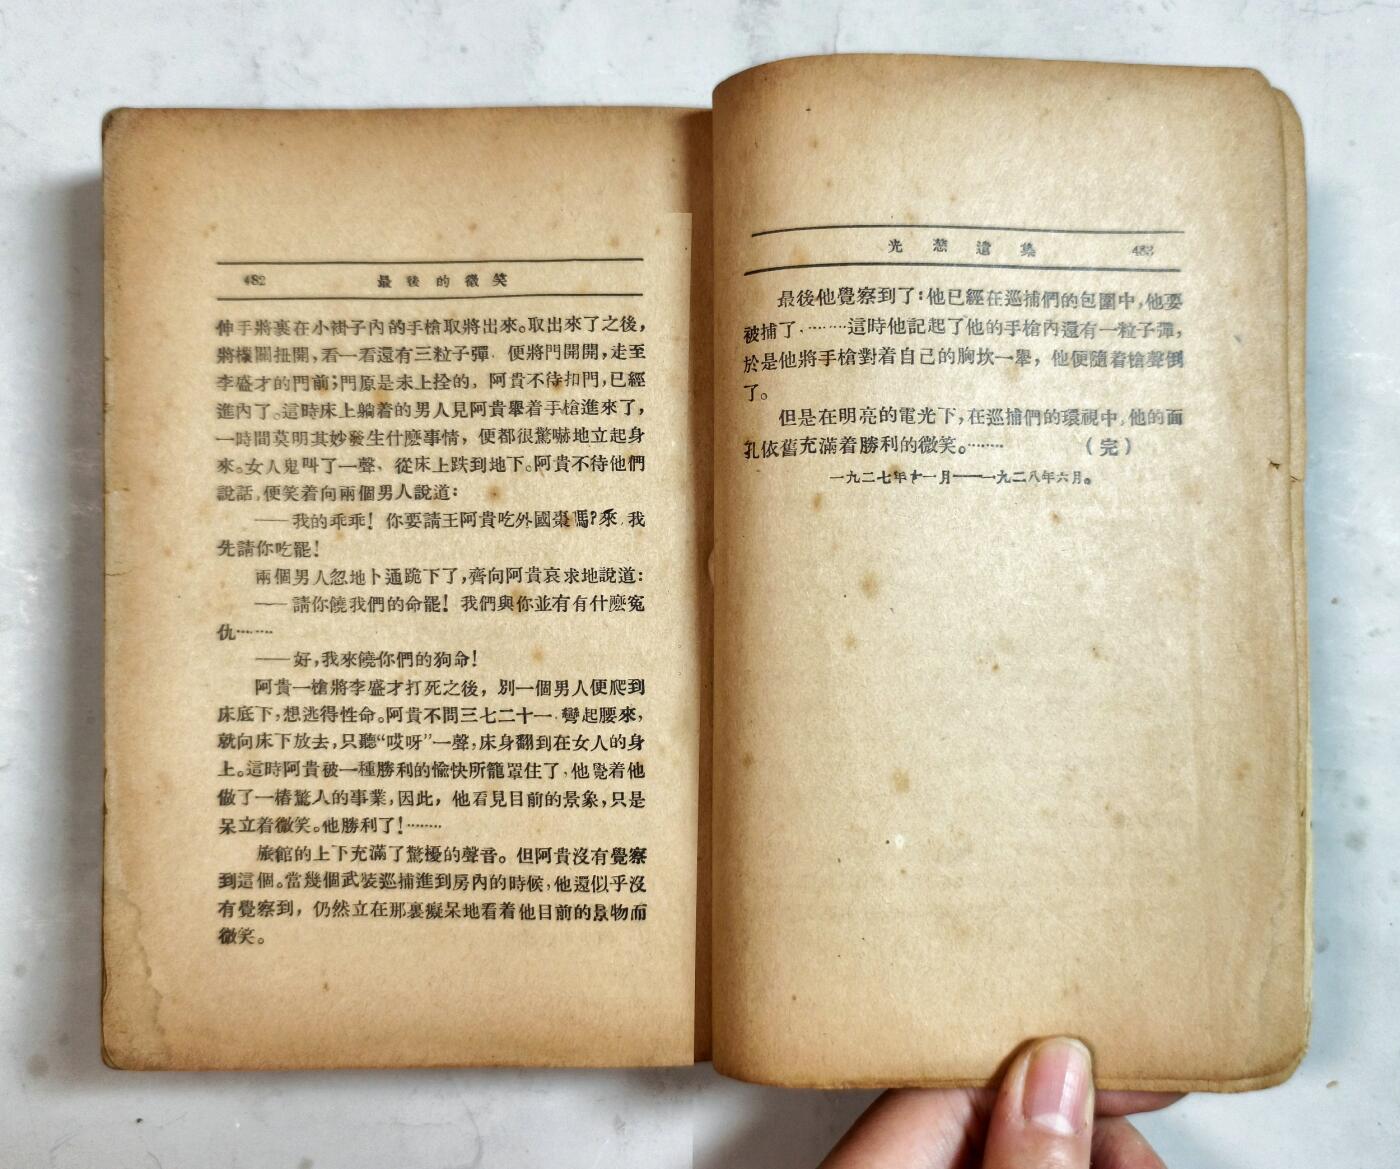 482 最後的微笑
伸手將裹在小褂子內的手槍取將出來。取出來了之後，
將機關扭開，看一看還有三粒子彈. 便將門開開，走至
李盛才的門前；門原是未上拴的，阿貴不待扣門，已經
進內了。這時床上躺着的男人見阿貴舉着手槍進來了，
一時間莫明其妙發生什麽事情，便都很驚嚇地立起身
來。女人鬼叫了一聲、從床上跌到地下。阿貴不待他們
說話，便笑着向兩個男人說道：
——我的乖乖！你要請王阿貴吃外國棗嗎？來，我
先請你吃罷！
兩個男人忽地卜通跪下了，齊向阿貴哀求地說道：
——請你饒我們的命罷！我們與你並有有什麽冤
仇……
——好，我來饒你們的狗命！
阿貴一槍將李盛才打死之後，別一個男人便爬到
床底下，想逃得性命。阿貴不問三七二十一，彎起腰來，
就向床下放去，只聽“哎呀”一聲，床身翻到在女人的身
上。這時阿貴被一種勝利的愉快所籠罩住了，他覺着他
做了一樁驚人的事業，因此，他看見目前的景象，只是
呆立着微笑。他勝利了！………
旅館的上下充滿了驚擾的聲音。但阿貴沒有覺察
到這個。當幾個武裝巡捕進到房內的時候，他還似乎沒
有覺察到，仍然立在那裏癡呆地看着他目前的景物而
微笑。
光慈遺集 483
最後他覺察到了：他已經在巡捕們的包圍中，他要
被捕了．………這時他記起了他的手槍內還有一粒子彈，
於是他將手槍對着自己的胸坎一舉，他便隨着槍聲倒
了。
但是在明亮的電光下，在巡捕們的環視中，他的面
孔依舊充滿着勝利的微笑。……… （完）
一九二七年十一月——一九二八年六月。